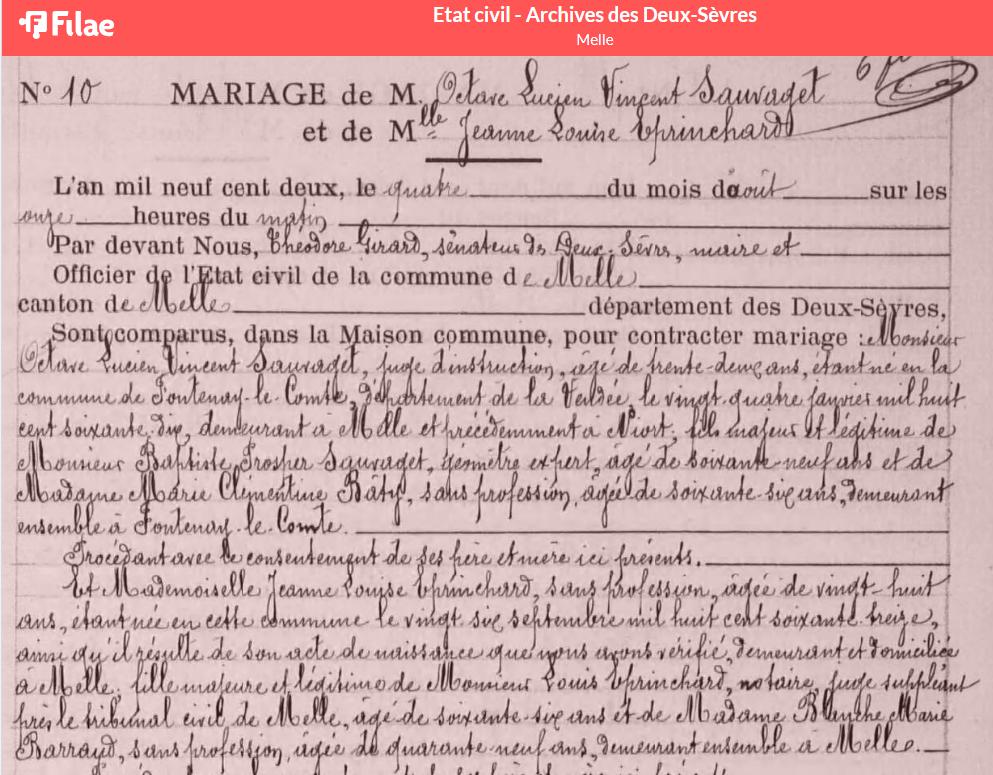 Filae
Etat civil - Archives des Deux-Sèvres
Melle
No 10 MARIAGE de M. Octave Lucien Vincent Sauvaget
et de Mlle Jeanne Louise Eprinchard
L'an mil neuf cent deux, le quatre du mois d'août sur les
onze heures du matin
Par devant Nous, Théodore Girard, sénateur des Deux-Sèvres, maire et
Officier de l'Etat civil de la commune de Melle
canton de Melle département des Deux-Sèvres,
Sont comparus, dans la Maison commune, pour contracter mariage : Monsieur
Octave Lucien Vincent Sauvaget, juge d'instruction, âgé de trente-deux ans, étant né en la
commune de Fontenay-le-Comte, département de la Vendée, le vingt-quatre janvier mil huit
cent soixante-dix, demeurant à Melle et précédemment à Niort; fils majeur et légitime de
Monsieur Baptiste Prosper Sauvaget, géomètre expert, âgé de soixante-neuf ans et de
Madame Marie Clémentine Bâty, sans profession, âgée de soixante-six ans, demeurant
ensemble à Fontenay-le-Comte.
Procédant avec le consentement de ses père et mère ici présents.
Et Mademoiselle Jeanne Louise Eprinchard, sans profession, âgée de vingt-huit
ans, étant née en cette commune le vingt six septembre mil huit cent soixante-treize,
ainsi qu'il résulte de son acte de naissance que nous avons vérifié, demeurant et domiciliée
à Melle; fille majeure et légitime de Monsieur Louis Eprinchard, notaire, juge suppléant
près le tribunal civil de Melle, âgé de soixante-six ans et de Madame Blanche Marie
Barraud, sans profession, âgée de quarante-neuf ans, demeurant ensemble à Melle.